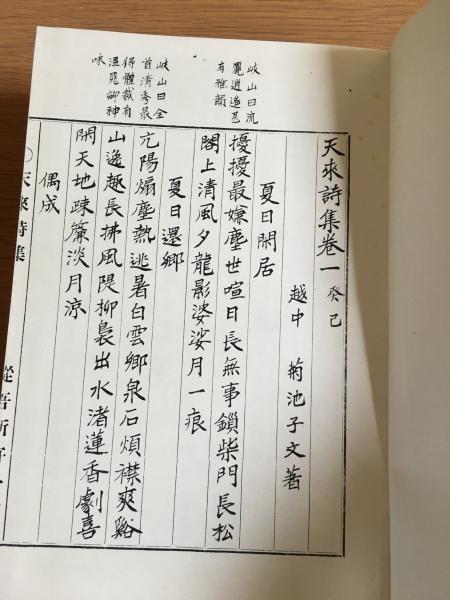 天來詩集卷一 癸巳
越中 菊池子文著
夏日閑居
擾擾最嫌塵世喧日長無事鎖柴門長松
閣上清風夕龍影婆娑月一痕
夏日還鄉
亢陽煽塵熱逃暑白雲鄉泉石煩襟爽谿
山逸趣長拂風隄柳裊出水渚蓮香劇喜
閑天地疎簾淡月涼
偶成
岐山曰流
麗遒逸忍
有雅韻
岐山曰全
首清秀最
得體裁有
溫飛卿神
味
天來詩集
從吾所好